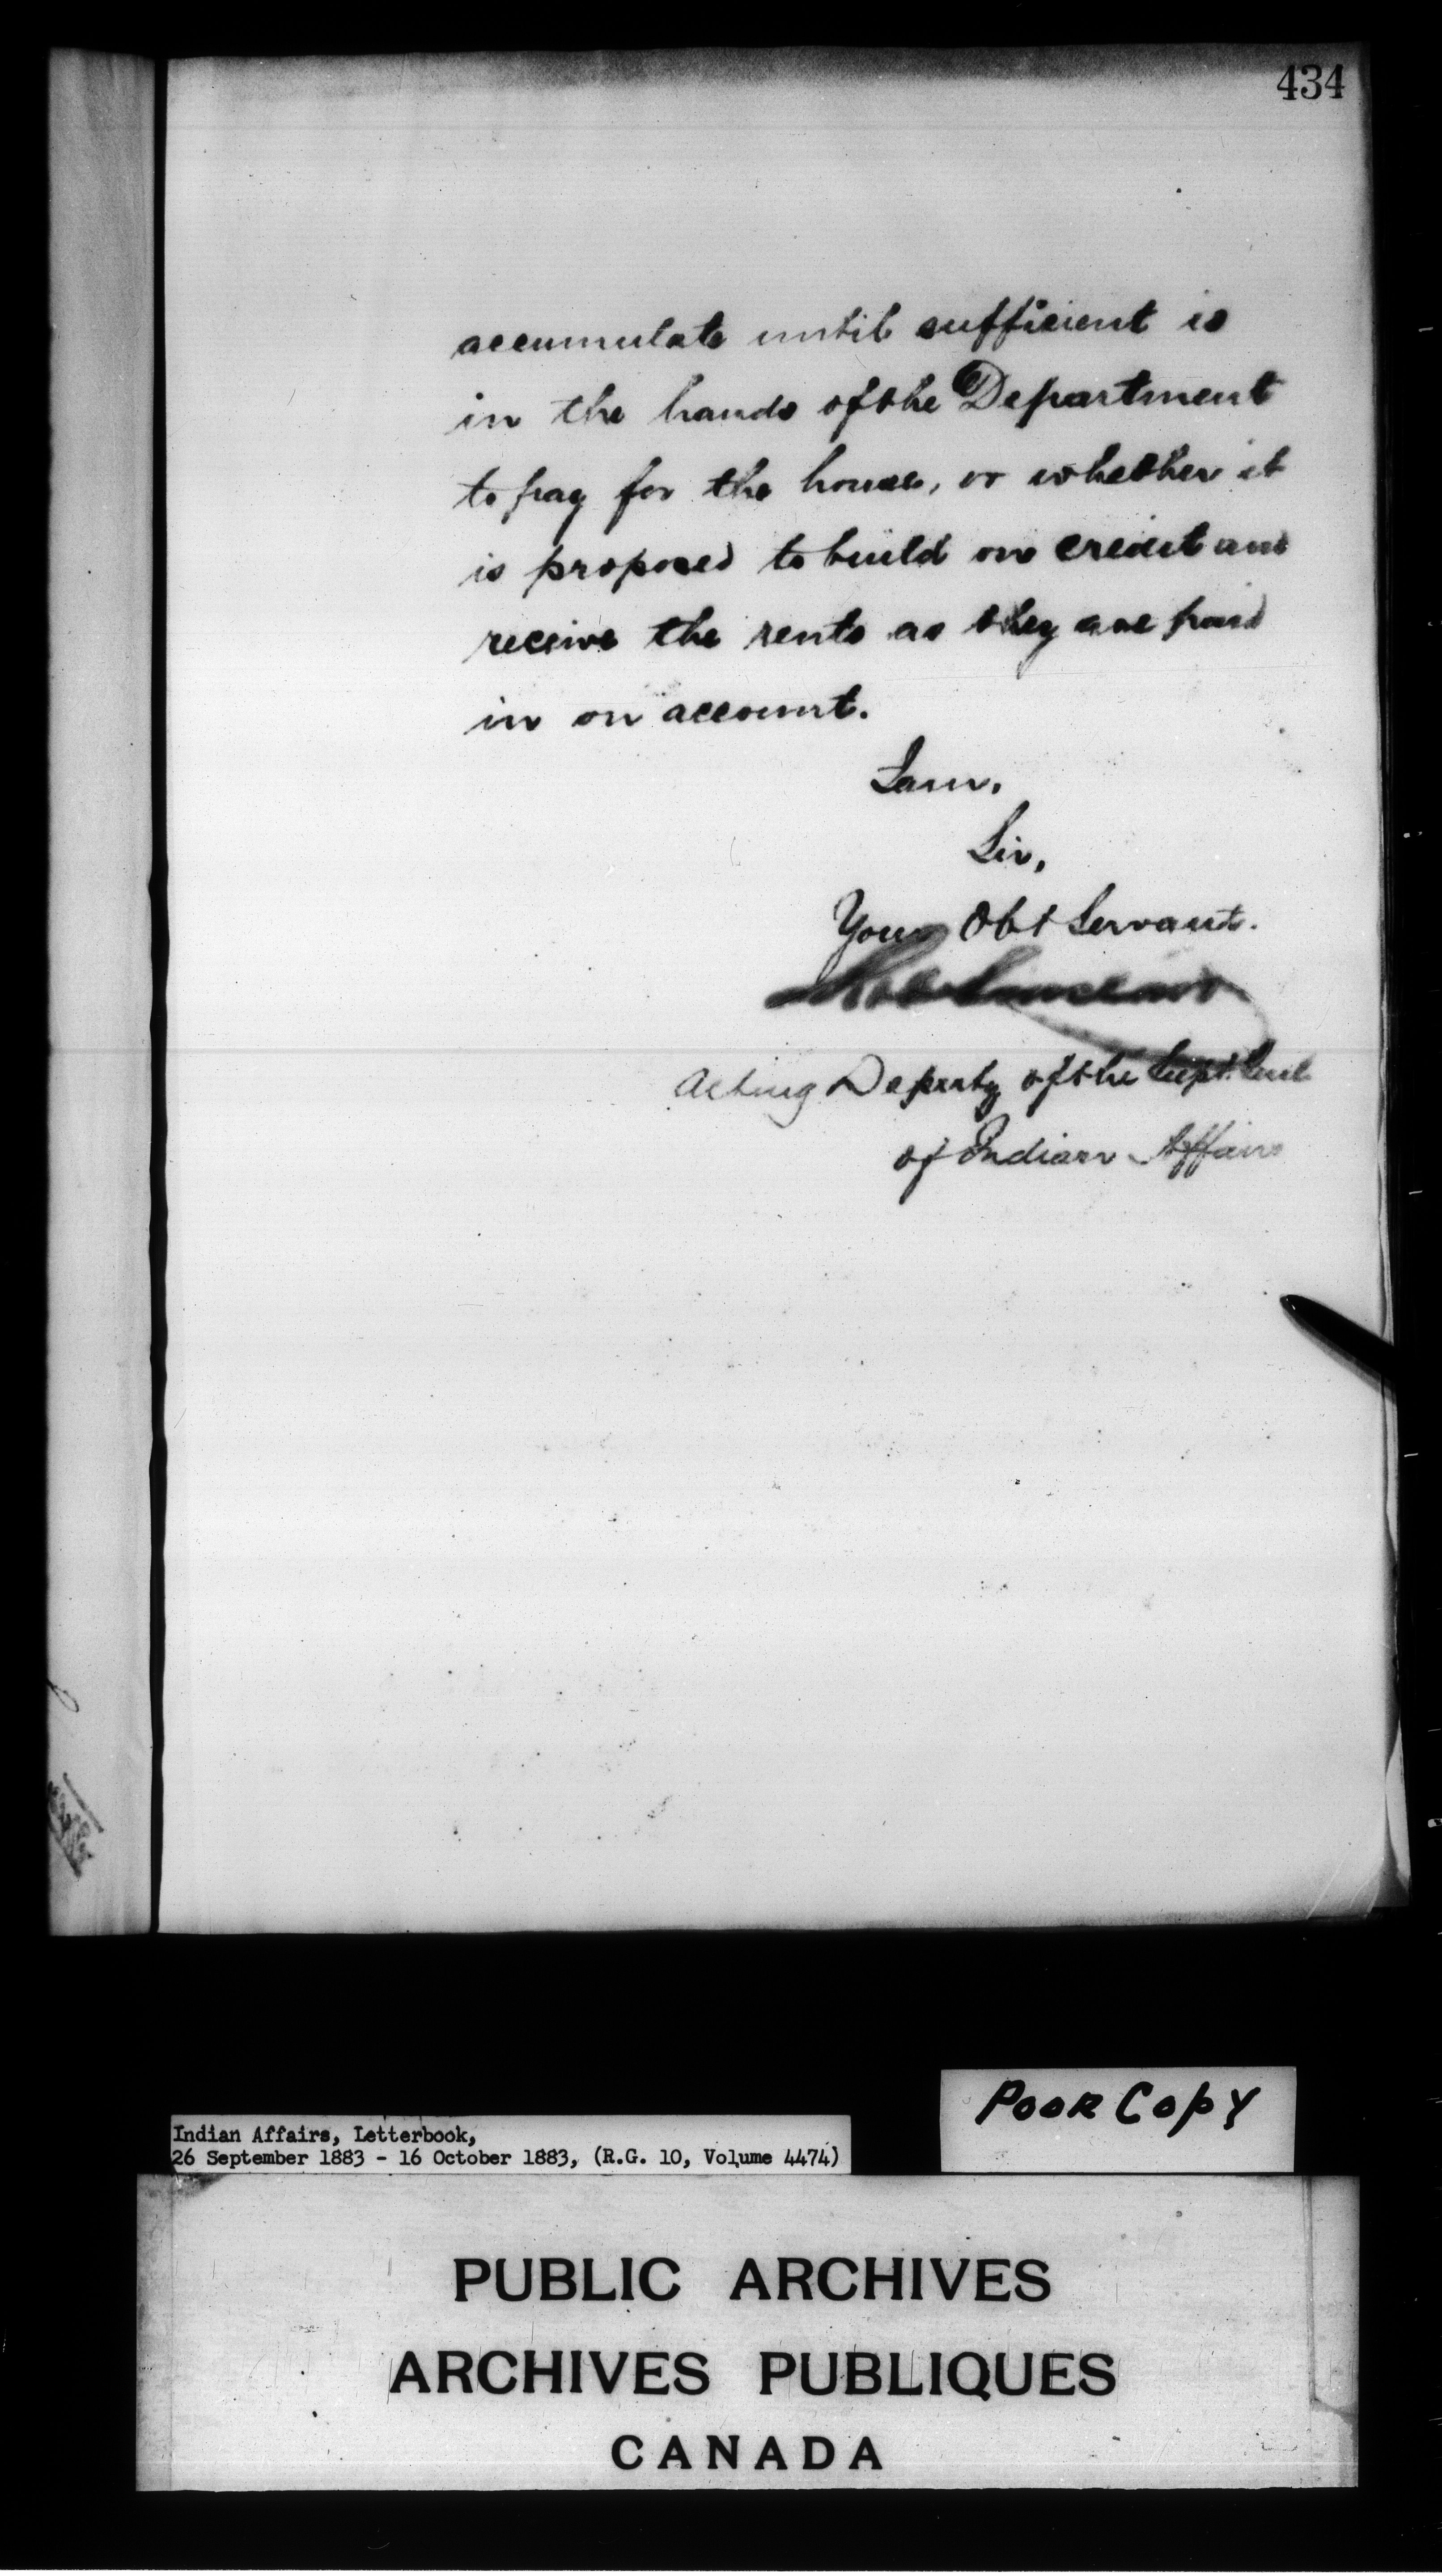 434
accumulate until sufficient is
in the hands of the Department
to pay for the house, or whether it
is proposed to build on credit and
receive the rents as they are paid
in on account.
I am,
Sir,
Your Obt Servant.
Acting Deputy of the Supt. Genl
of Indian Affairs
POOR COPY
Indian Affairs, Letterbook,
26 September 1883 - 16 October 1883, (R.G. 10, Volume 4474)
PUBLIC ARCHIVES
ARCHIVES PUBLIQUES
CANADA